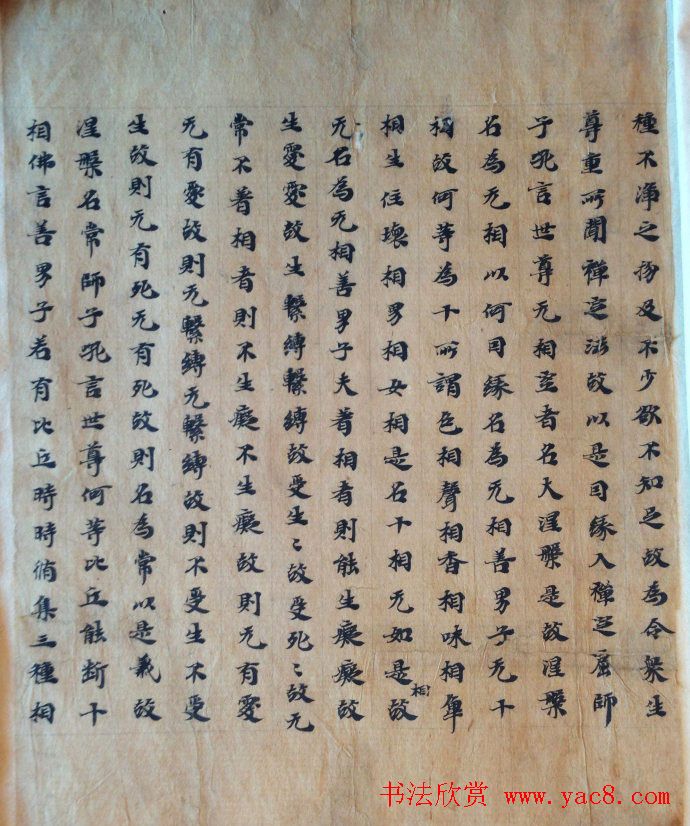 種不淨之物及不少欲不知足故為令衆生
尊重所聞禪定法故以是因緣入禪定窟師
子吼言世尊无相定者名大涅槃是故涅槃
名為无相以何因緣名為无相善男子无十
相故何等為十所謂色相聲相香相味相觸
相生住壞相男相女相是名十相无如是相故
无名為无相善男子夫著相者則能生癡癡故
生愛愛故生繫縛繫縛故受生〻故受死〻故无
常不著相者則不生癡不生癡故則无有愛
无有愛故則无繫縛无繫縛故則不受生不受
生故則无有死无有死故則名為常以是義故
涅槃名常師子吼言世尊何等比丘能斷十
相佛言善男子若有比丘時時脩集三種相
书法欣赏 www.yac8.com